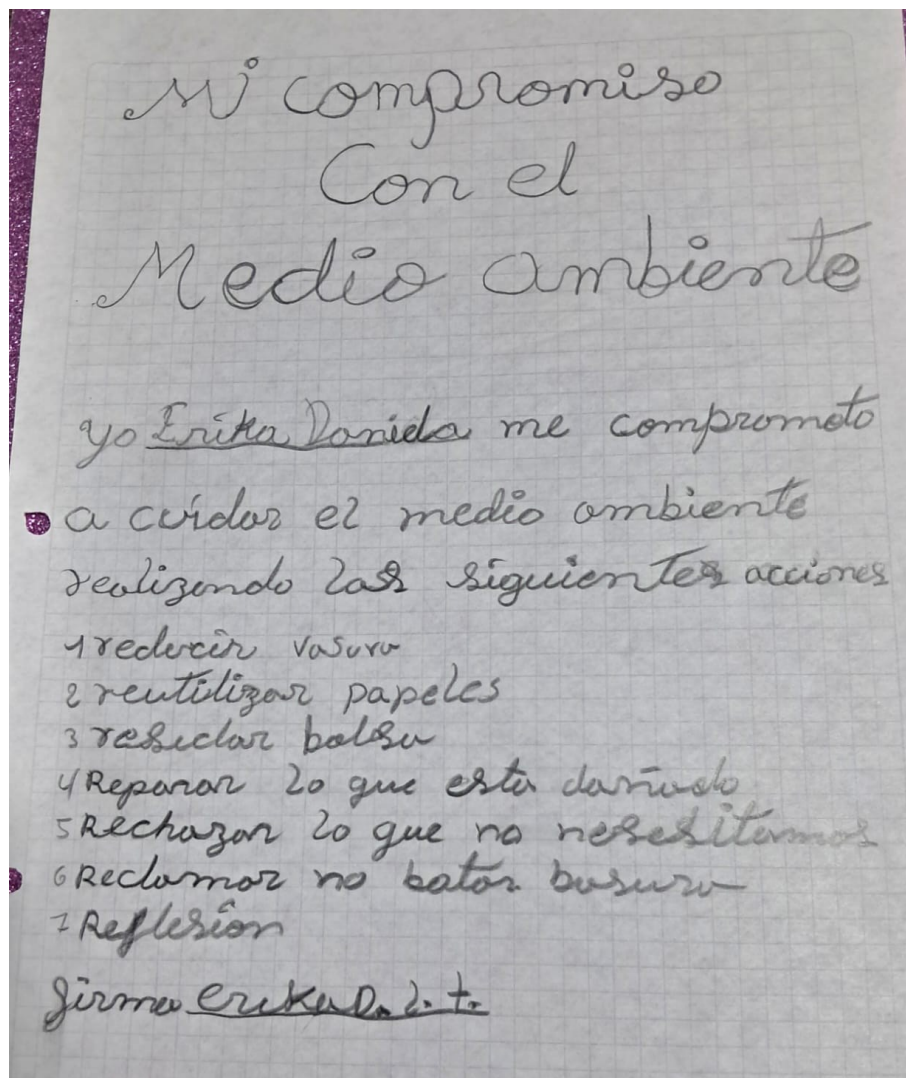 Mi compromiso
Con el
Medio ambiente
yo Erika Daniela me comprometo
a cuidar el medio ambiente
realizando las siguientes acciones
1 reducir vasura
2 reutilizar papeles
3 resiclar bolsa
4 Reparar lo que esta dañado
5 Rechazar lo que no nesesitamos
6 Reclamar no botar basura
7 Reflesión
firma erika D. L. t.